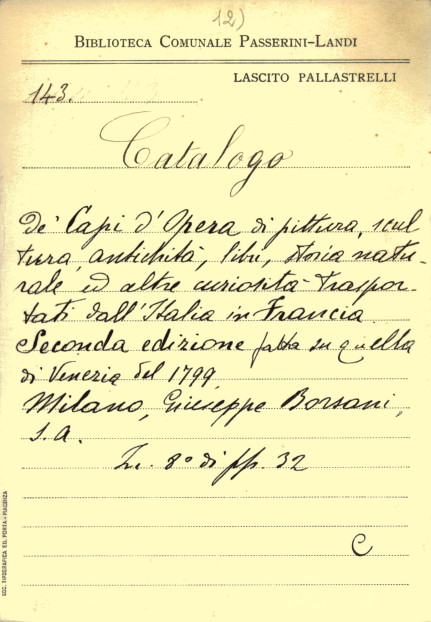 12)
BIBLIOTECA COMUNALE PASSERINI-LANDI
LASCITO PALLASTRELLI
143.
Catalogo
De' Capi d'Opera di pittura, scul
tura, antichità, libri, storia natu-
rale ed altre curiosità traspor-
tati dall'Italia in Francia.
Seconda edizione fatta su quella
di Venezia del 1799.
Milano, Giuseppe Borsani,
s.a.
In 8° di pp. 32
C
SOC. TIPOGRAFICA ED. PORTA - PIACENZA